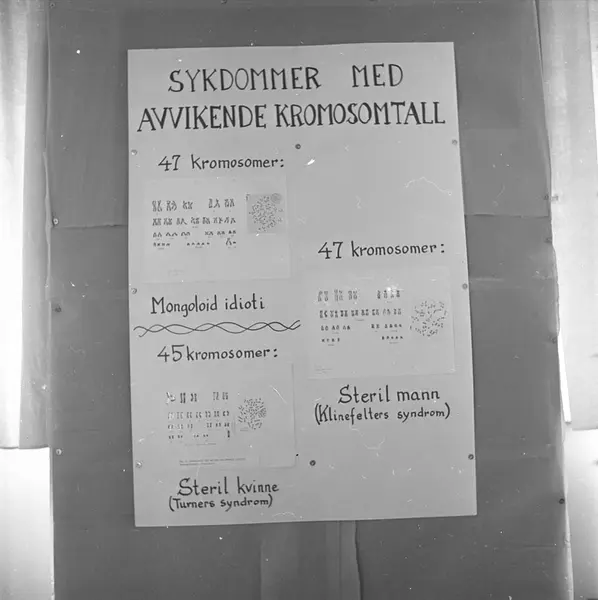 SYKDOMMER MED
AVVIKENDE KROMOSOMTALL
47 kromosomer:
Mongoloid idioti
45 kromosomer:
Steril kvinne
(Turners syndrom)
47 kromosomer:
Steril mann
(Klinefelters syndrom)